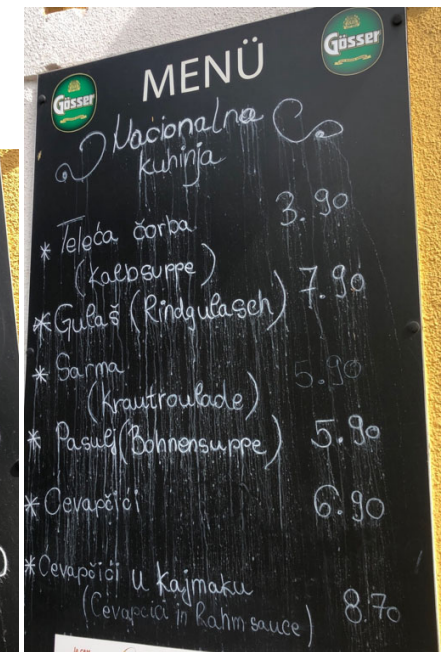 Gösser
MENÜ
Gösser
Nacionalna
kuhinja
* Teleća čorba 3.90
(Kalbsuppe)
* Gulaš (Rindgulasch) 7.90
* Sarma 5.90
(Krautroulade)
* Pasulj (Bohnensuppe) 5.90
* Cevapčići 6.90
* Cevapčići u Kajmaku
(Cevapcici in Rahmsauce) 8.70